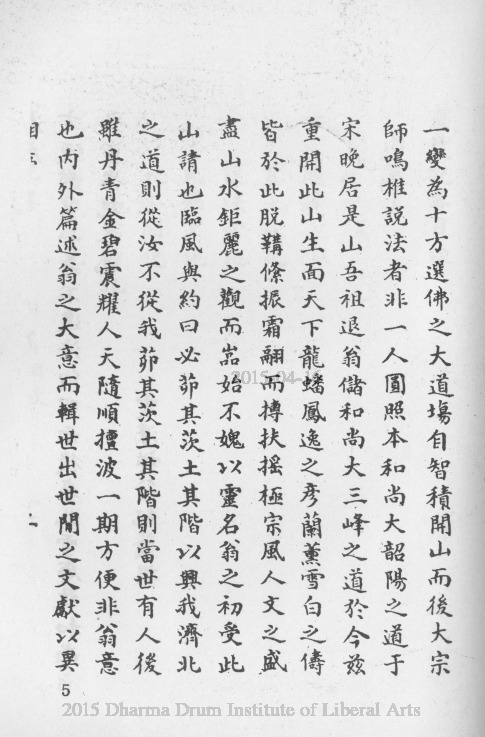 一變為十方選佛之大道場自智積開山而後大宗
師鳴椎説法者非一人圓照本和尚大韶陽之道于
宋晚居是山吾祖退翁儲和尚大三峰之道於今茲
重開此山生面天下龍蟠鳳逸之彥蘭薰雪白之儔
皆於此脱韝絛振霜翮而摶扶摇極宗風人文之盛
盡山水鉅麗之觀而嵓始不媿以靈名翁之初受此
山請也臨風與約曰必茆其茨土其階以興我濟北
之道則從汝不從我茆其茨土其階則當世有人後
雖丹青金碧震耀人天隨順擅波一期方便非翁意
也内外篇述翁之大意而輯世出世間之文獻以異
5
2015-04-
2015 Dharma Drum Institute of Liberal Arts